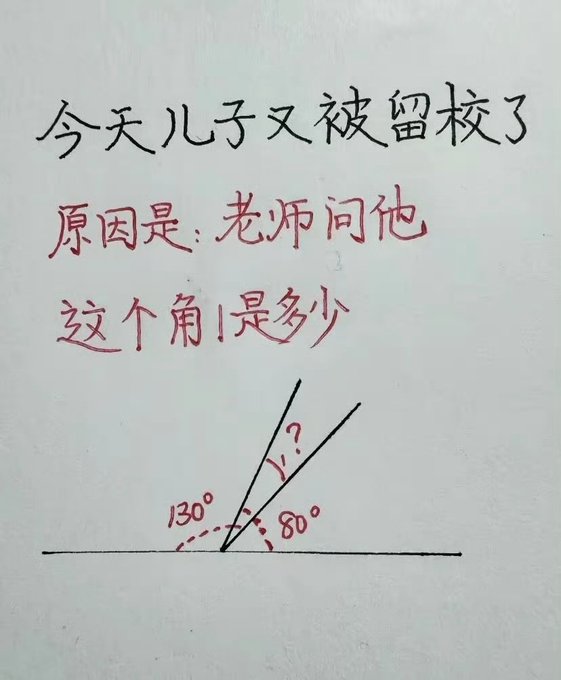 今天儿子又被留校了
原因是：老师问他
这个角1是多少
1 ?
130° 80°